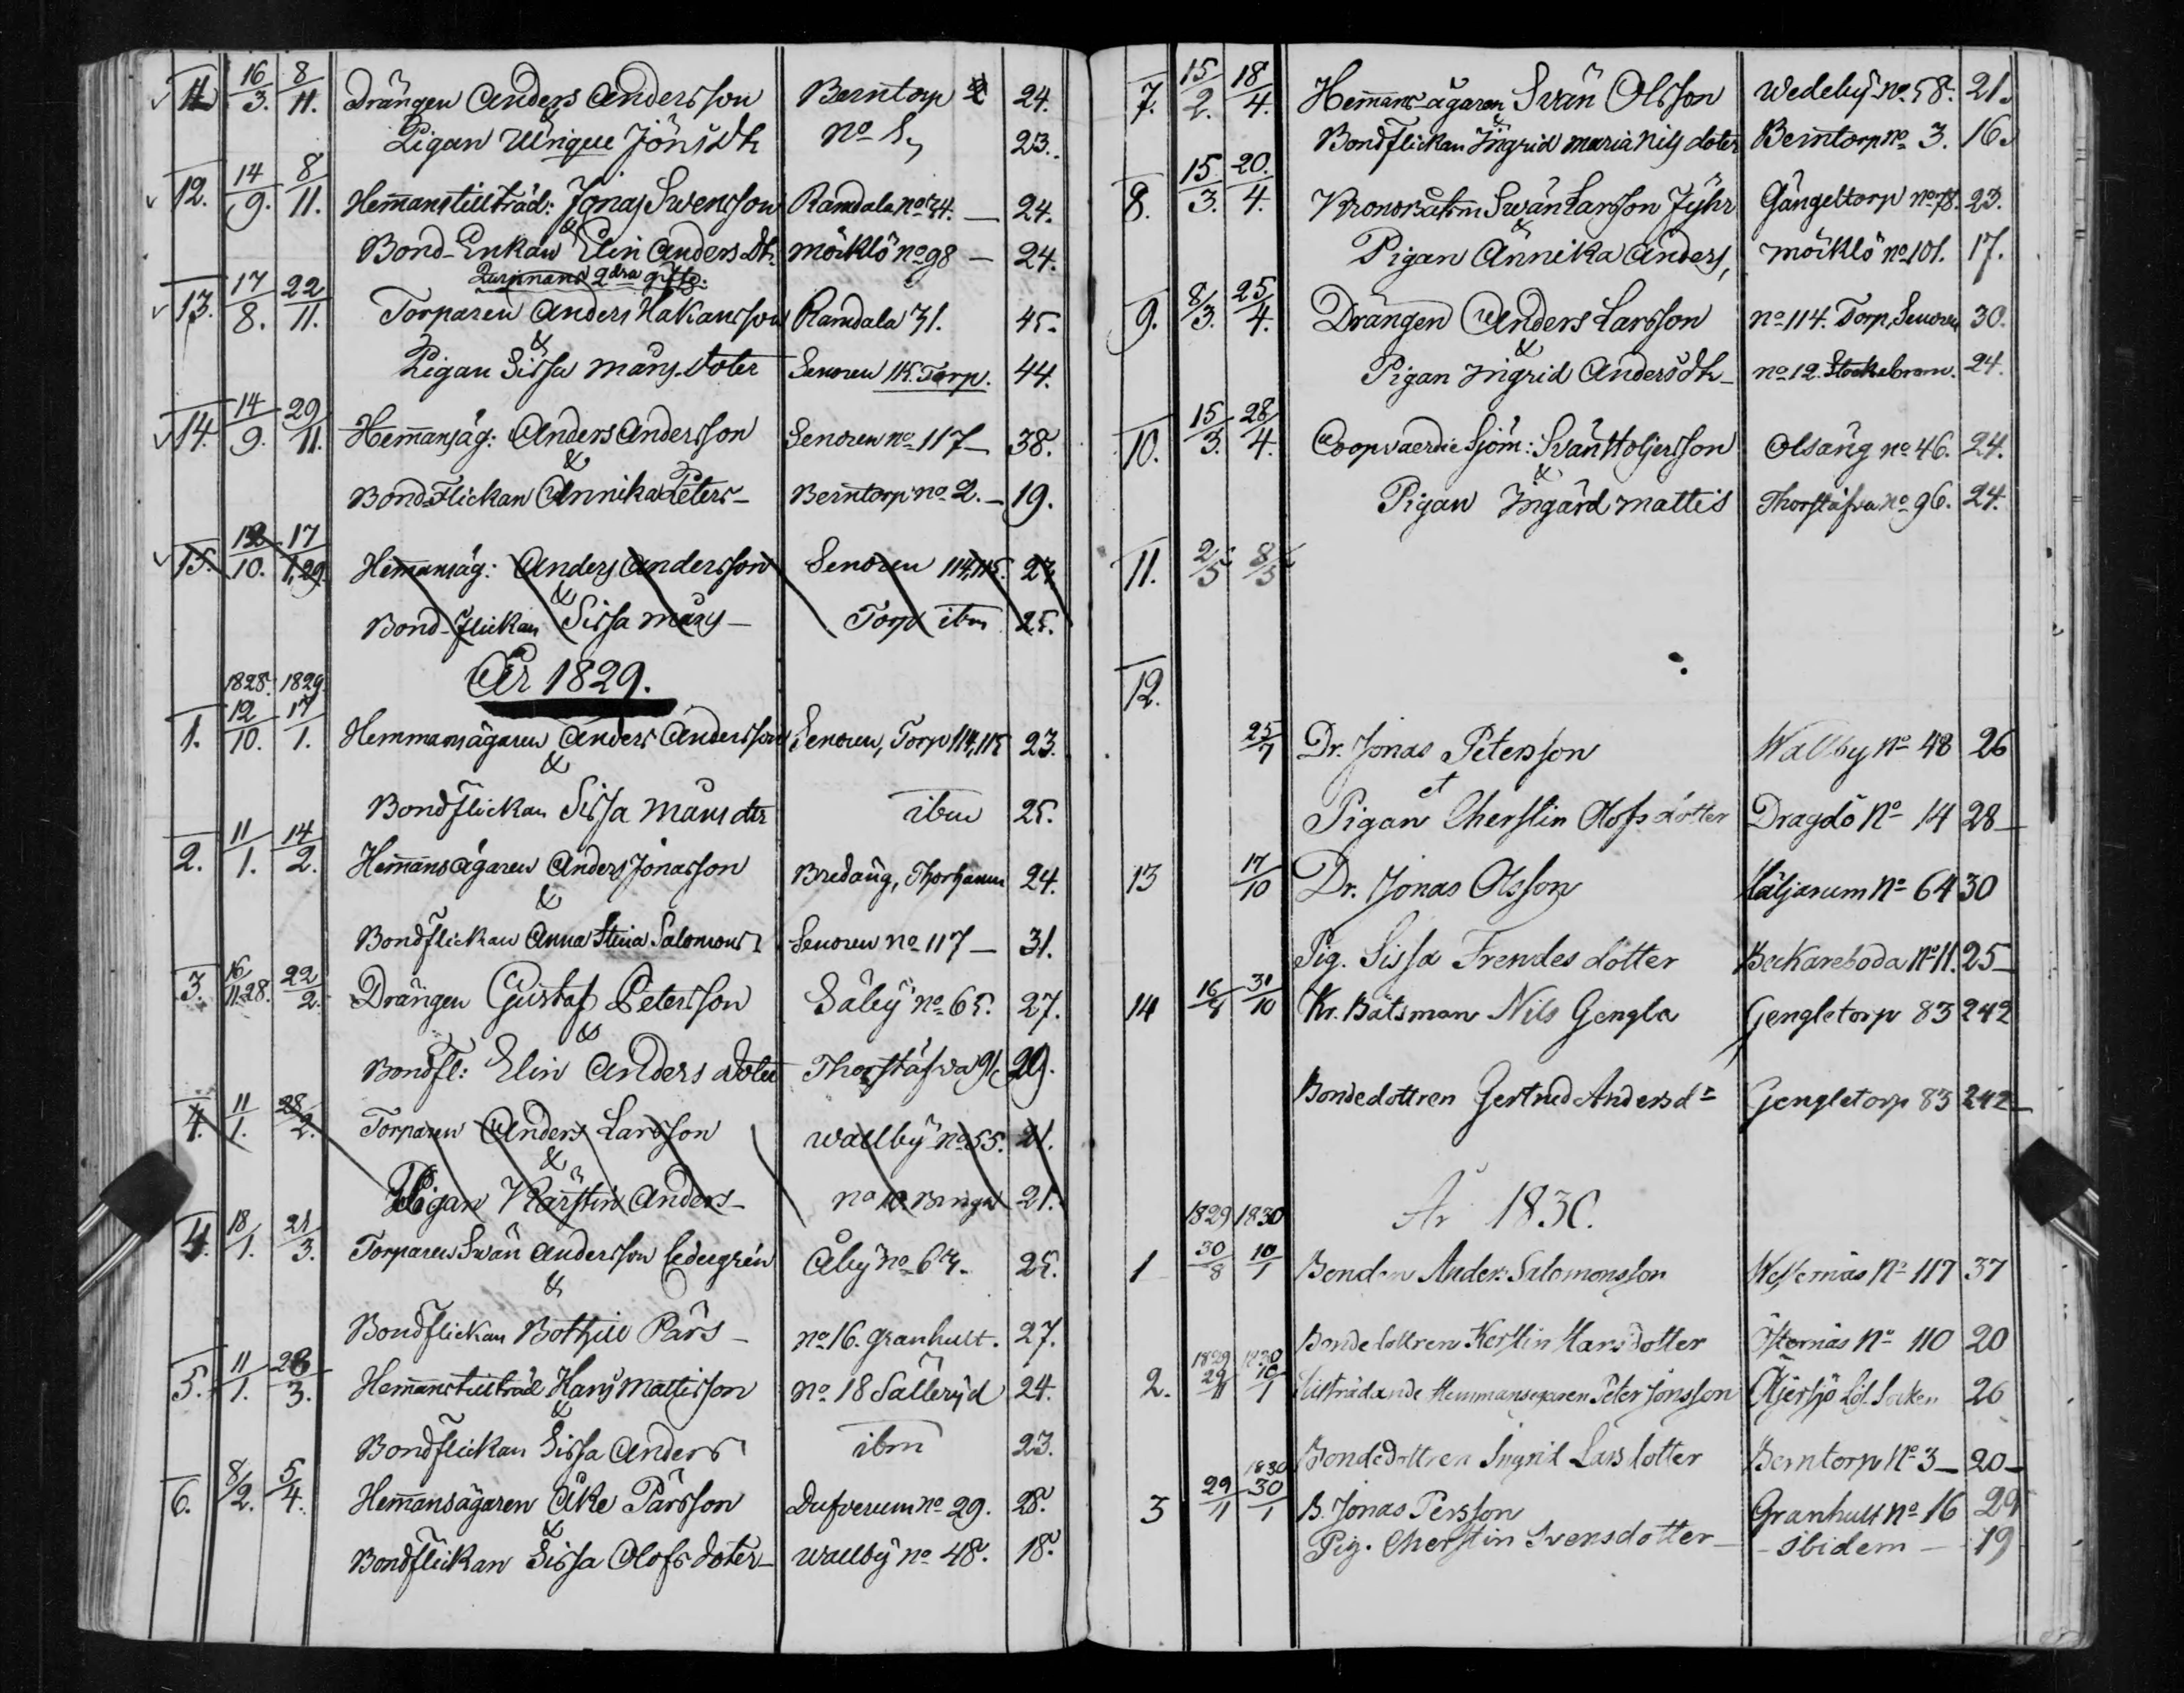 11. 16/3. 8/11. Drängen Anders Andersson Berntorp 24.
&
Pigan Ulrique Jöns Dtr 23.
12. 14/9. 8/11. Hem̄anstillträd: Jonas Swensson Ramdala no 34. — 24.
&
Bond-Enkan Elin Anders Dtr. Möcklö no 98 — 24.
Quinnans 2dra gifte.
13. 17/8. 22/11. Torparen Anders Håkansson Ramdala 31. 45.
&
Pigan Sissa Måns doter Senoren 115. Torp. 44.
14. 14/9. 29/11. Hem̄ansäg: Anders Andersson Senoren no 117 — 38.
&
Bond-Flickan Annika Peters — Berntorp no 2. — 19.
15. 12/10. 17/1.29. Hem̄ansäg: Anders Andersson Senoren 114,115. 27.
&
Bond-flickan Sissa Måns — Torp ibm 25.
År 1829.
1828. 1829.
1. 12/10. 17/1. Hemmansägaren Anders Andersson Senoren, Torp 114,115 23.
&
Bondflickan Sissa Måns dtr ibm 25.
2. 11/1. 14/2. Hem̄ansägaren Anders Jonasson Bredäng, Thorhamn 24.
&
Bondflickan Anna Stina Salomons Senoren no 117 — 31.
3. 16/11.28. 22/2. Drängen Gustaf Petersson Säby no 65. 27.
&
Bondfl: Elin Anders doter Thorstäfva 91. 29.
4. 11/1. 28/2. Torparen Anders Larsson Wallby no 55. 21.
&
Pigan Kärstin Anders — no 10. 21.
4. 18/1. 21/3. Torparen Swän Andersson Cedergrén Åby no 64. 25.
&
Bondflickan Bothill Pärs — no 16. Granhult. 27.
5. 11/1. 28/3. Hem̄anstillträd Hans Mattisson no 18 Sälleryd 24.
&
Bondflickan Sissa Anders ibm 23.
6. 8/2. 5/4. Hem̄ansägaren Åke Pärsson Dufverum no 29. 28.
&
Bondflickan Sissa Olofs doter — Wallby no 48. 18.
7. 15/2. 18/4. Hem̄ans-ägaren Svän Olsson Wedeby no 58. 21.
&
Bondflickan Ingrid Maria Nils doter Berntorp no 3. 16.
8. 15/3. 20/4. Kronobåtsm Swän Larsson Jÿhr Gängeltorp no 78. 23.
&
Pigan Annika Anders, Möcklö no 101. 17.
9. 8/3. 25/4. Drängen Anders Larsson no 114. Torp, Senoren 30.
&
Pigan Ingrid Anders dtr — no 12. 24.
10. 15/3. 28/4. Coopvaerdie Sjöm: Svän Holjersson Olsäng no 46. 24.
&
Pigan Ingärd Mattis Thorstäfva no 96. 24.
11. 2/5 8/5
12.
25/7 Dr. Jonas Petersson Wallby No 48 26
et
Pigan Cherstin Olofs dotter Dragdö No 14 28 —
13 17/10 Dr. Jonas Olsson Häljarum No 64 30
Pig. Sissa Frendes dotter Beckareboda No 11. 25 —
14 31/10 Kr. Båtsman Nils Gengla Gengletorp 83 242
Bondedottren Gertrud Andersd r Gengletorp 83 242 —
År 1830.
1829 1830
1 30/8 10/1 Bonden Anders Salomonsson Westernäs No 117 37
Bondedottren Kerstin Hansdotter Östernäs No 110 20
1829 1830
2. 29/11 10/1 Tillträdande Hemmansegaren Peter Jönsson Löf. Socken 26
Bondedottren Ingrid Larsdotter Berntorp No 3 — 20 —
1830
3 29/11 30/1 B. Jonas Persson Granhult No 16 29
Pig. Cherstin Svensdotter — — ibidem — 19